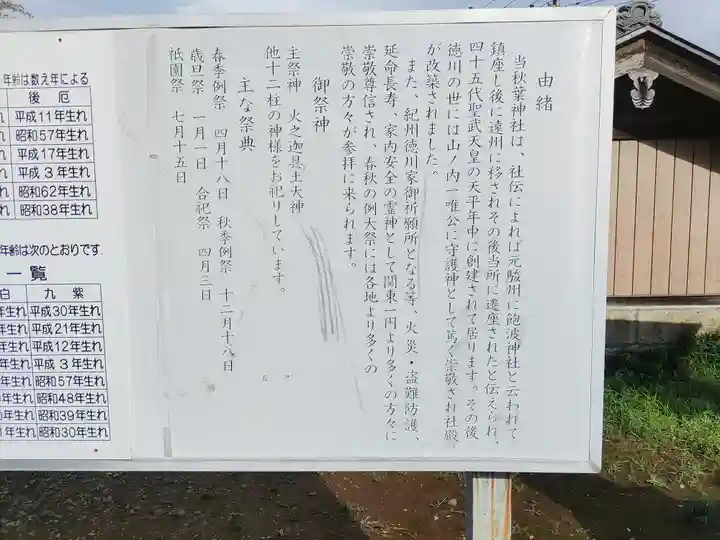 由緒
当秋葉神社は、社伝によれば元駿州に飽波神社と云われて
鎮座し後に遠州に移されその後当所に遷座されたと伝えられ、
四十五代聖武天皇の天平年中に創建されて居ります。その後
徳川の世には山ノ内一唯公に守護神として篤く崇敬され社殿
が改築されました。
また、紀州徳川家御祈願所となる等、火災・盗難防護、
延命長寿、家内安全の霊神として関東一円より多くの方々に
崇敬尊信され、春秋の例大祭には各地より多くの
崇敬の方々が参拝に来られます。
御祭神
主祭神 火之迦具土大神
他十二柱の神様をお祀りしています。
主な祭典
春季例祭 四月十八日 秋季例祭 十二月十八日
歳旦祭 一月一日 合祀祭 四月三日
祇園祭 七月十五日
年齢は数え年による
後厄
平成11年生れ
昭和57年生れ
平成17年生れ
平成3年生れ
昭和62年生れ
昭和38年生れ
年齢は次のとおりです.
一覧
白 九紫
年生れ 平成30年生れ
年生れ 平成21年生れ
年生れ 平成12年生れ
年生れ 平成3年生れ
年生れ 昭和57年生れ
年生れ 昭和48年生れ
年生れ 昭和39年生れ
年生れ 昭和30年生れ